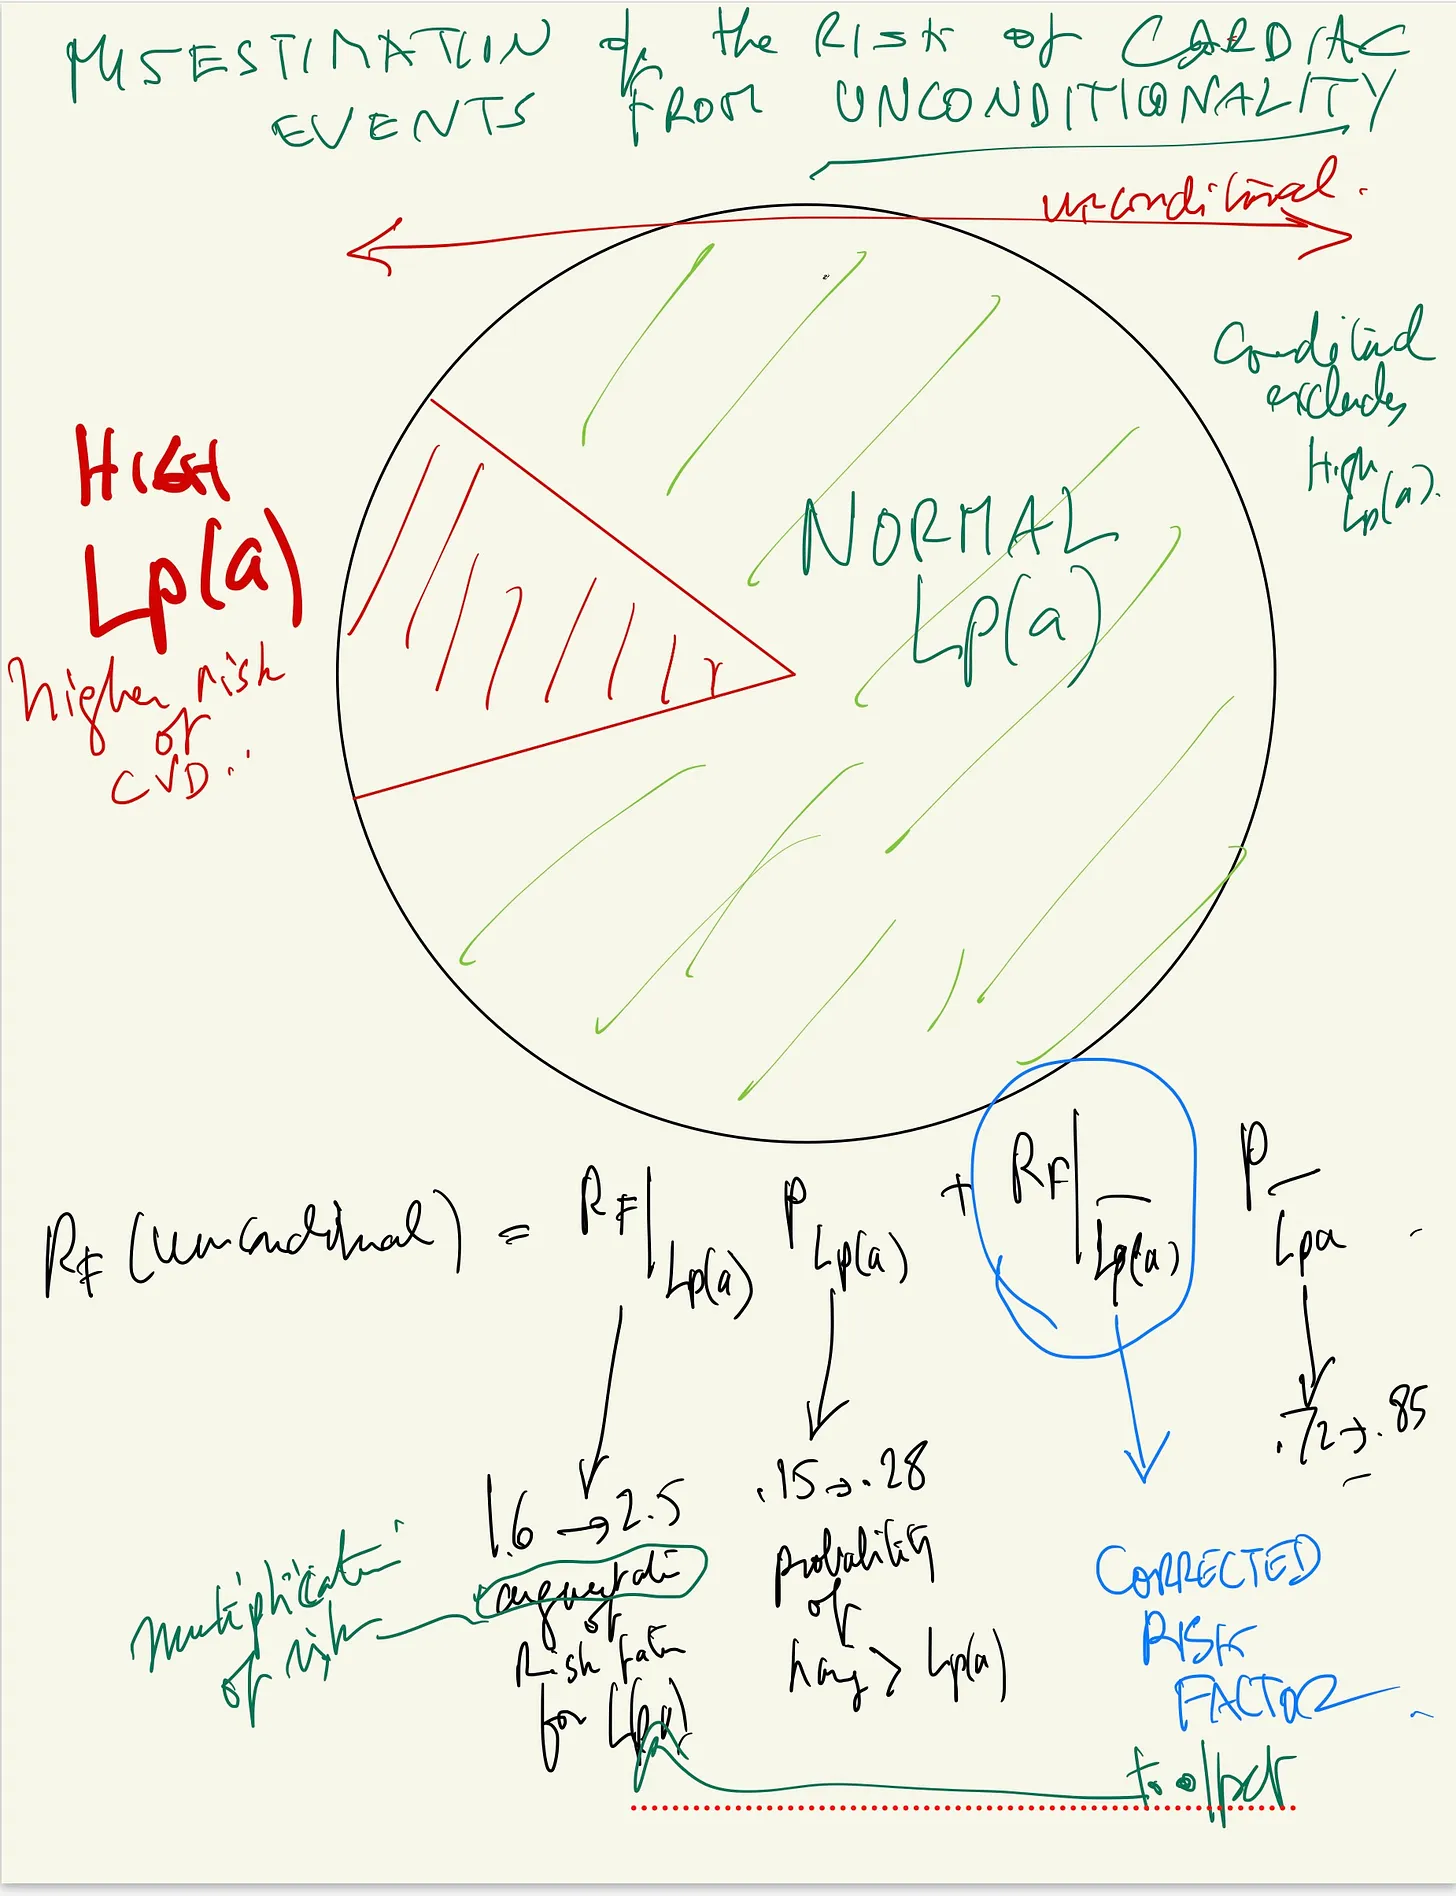 MISESTIMATION of the RISK of CARDIAC
EVENTS FROM UNCONDITIONALITY
unconditional.
Conditional
excludes
High
Lp(a).
HIGH
Lp(a)
higher risk
of
CVD..
NORMAL
Lp(a)
RF (unconditional) = RF|Lp(a) P Lp(a) + RF|L̅p̅(̅a̅)̅ P L̅p̅a̅
.72→.85
1.6 → 2.5
.15→.28
augmentation
of
Risk factor
for Lp(a)
probability
of
having > Lp(a)
multiplication
of risk
CORRECTED
RISK
FACTOR
to offset